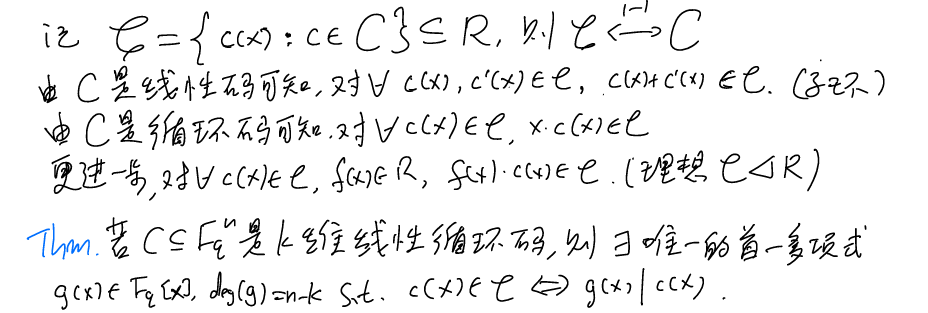 记 𝒞={c(x):c∈C}⊆R, 则 𝒞 ⟷^{1-1} C
由 C 是线性码可知,对∀ c(x), c'(x)∈𝒞, c(x)+c'(x)∈𝒞. (子环)
由 C 是循环码可知.对∀c(x)∈𝒞, x·c(x)∈𝒞
更进一步,对∀c(x)∈𝒞, f(x)∈R, f(x)·c(x)∈𝒞.(理想 𝒞◁R)
Thm. 若 C⊆F_q^n 是 k 维线性循环码,则 ∃唯一的首一多项式
g(x)∈F_q[x], deg(g)=n-k s.t. c(x)∈𝒞 ⇔ g(x)|c(x).